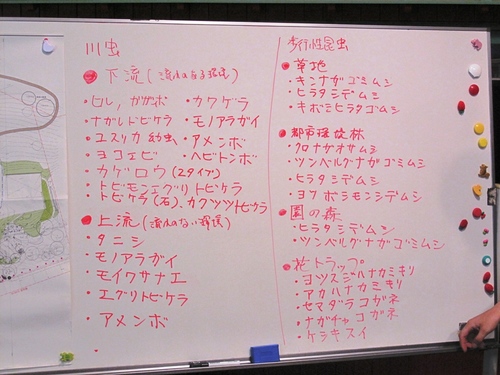 川虫
●下流(流れのある環境)
・ヒル、ガガンボ ・カワゲラ
・ナガレトビケラ ・モノアラガイ
・ユスリカ幼虫 ・アメンボ
・ヨコエビ ・ヘビトンボ
・カゲロウ(2タイプ)
・トビモンエグリトビケラ
・トビケラ(石)、カクツツトビケラ
●上流(流れのない環境)
・タニシ
・モノアラガイ
・モイワサナエ
・エグリトビケラ
・アメンボ
歩行性昆虫
●草地
・キンナガゴミムシ
・ヒラタシデムシ
・キボシヒラタゴムシ
●都市環境林
・クロナガオサムシ
・ツンベルグナガゴミムシ
・ヒラタシデムシ
・ヨツボシモンシデムシ
●園の森
・ヒラタシデムシ
・ツンベルグナガゴミムシ
●花トラップ
・ヨツスジハナカミキリ
・アカハナカミキリ
・セマダラコガネ
・ナガチャコガネ
・ケラキスイ